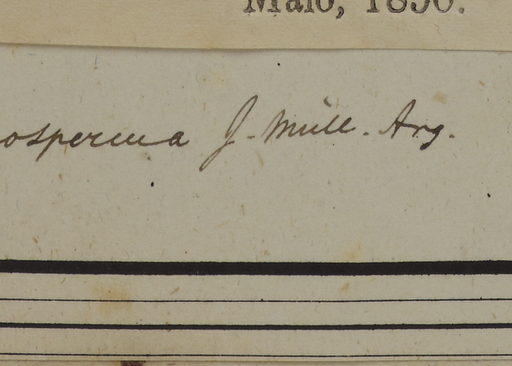 Maio, 1890.
osperma J. Müll. Arg.